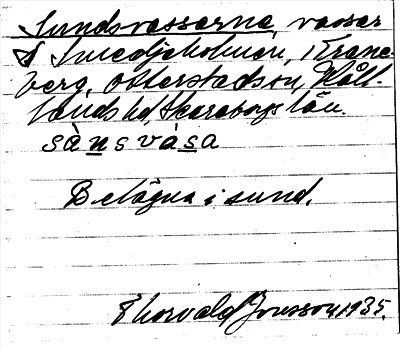 Sundsvassarna, vassar
S Smedjeholmen, Krane-
berg, Otterstadsn, Kål-
lands hd, Skaraborgs län.
sànsvàsa
Belägna i sund.
Thorvald Jonsson 1935.